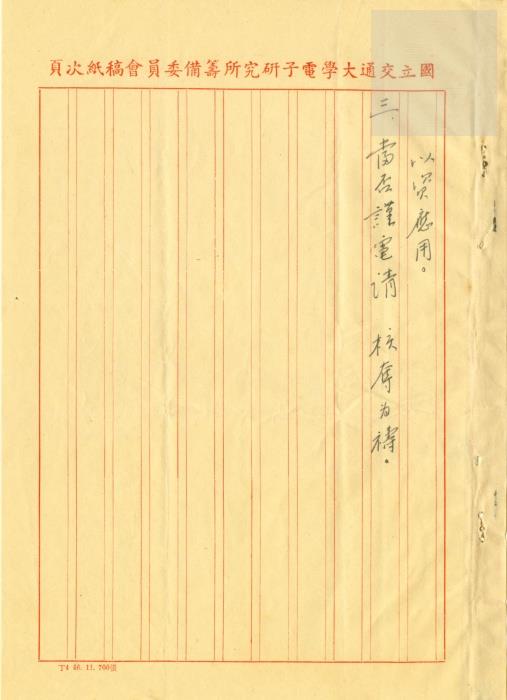 國立交通大學電子研究所籌備委員會稿紙次頁
以資應用。
三、當否謹電請　核奪為禱。
T4 46. 11. 700張